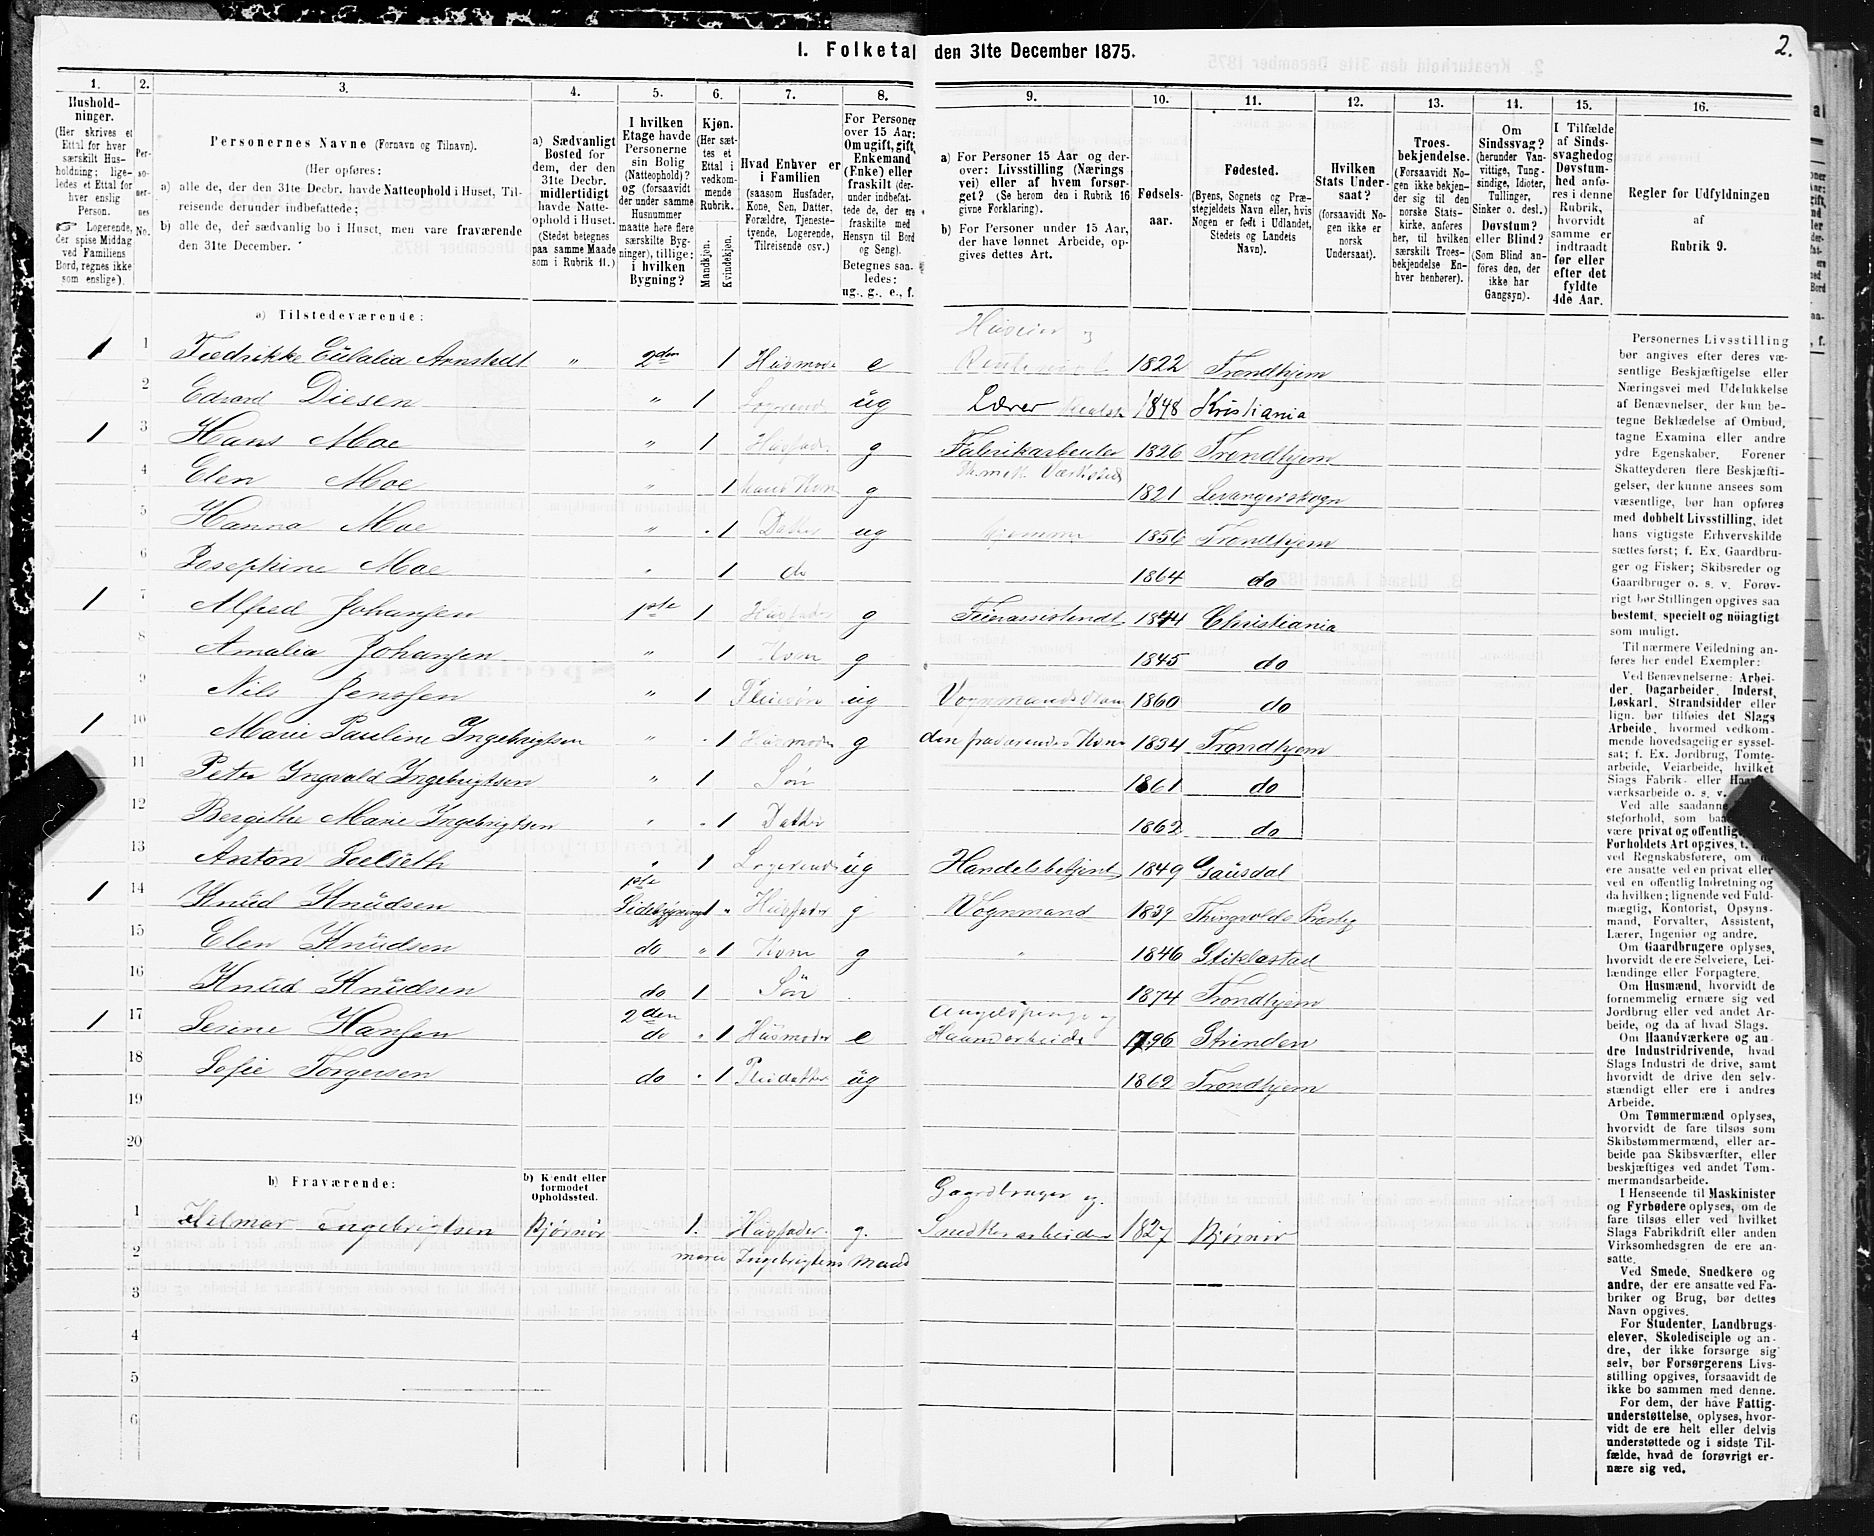 2.
I. Folketal den 31te December 1875.
1.
Hushold-
ninger.
(Her skrives et
Ettal for hver
særskilt Hus-
holdning; lige-
ledes et Ettal for
hver enslig
Person.
Logerende,
der spise Middag
ved Familiens
Bord, regnes ikke
som enslige).
2.
Per-
so-
ner-
nes
No.
3.
Personernes Navne (Fornavn og Tilnavn).
(Her opføres:
a) alle de, der den 31te Decbr. havde Natteophold i Huset, Til-
reisende derunder indbefattede;
b) alle de, der sædvanlig bo i Huset, men vare fraværende
den 31te December.
4.
a) Sædvanligt
Bosted for
dem, der den
31te Decbr.
midlertidigt
havde Natte-
ophold i Huset.
(Stedet betegnes
paa samme Maade
som i Rubrik 11.)
5.
I hvilken
Etage havde
Personerne
sin Bolig
(Natteophold)?
og (forsaavidt
der under samme
Husnummer
maatte høre flere
særskilte Byg-
ninger), tillige:
i hvilken
Bygning?
6.
Kjøn.
(Her sæt-
tes et
Ettal i
vedkom-
mende
Rubrik.
Mandkjøn.
Kvindekjøn.
7.
Hvad Enhver er
i Familien
(saasom Husfader,
Kone, Søn, Datter,
Forældre, Tjeneste-
tyende, Logerende,
Tilreisende osv.)
8.
For Personer
over 15 Aar:
Om ugift, gift,
Enkemand
(Enke) eller
fraskilt (der-
under indbefat-
tede de, der ere
fraskilte med
Hensyn til Bord
og Seng).
Betegnes saa-
ledes:
ug., g., e., f.
9.
a) For Personer 15 Aar og der-
over: Livsstilling (Nærings
vei) eller af hvem forsør-
get? (Se herom den i Rubrik 16
givne Forklaring).
b) For Personer under 15 Aar,
der have lønnet Arbeide, op-
gives dettes Art.
10.
Fødsels-
aar.
11.
Fødested.
(Byens, Sognets og Præ-
stegjeldets Navn eller, hvis
Nogen er født i Udlandet,
Stedets og Landets
Navn).
12.
Hvilken
Stats Under-
saat?
(forsaavidt No-
gen ikke er
norsk
Undersaat).
13.
Troes-
bekjendelse.
(Forsaavidt No-
gen ikke bekjen-
der sig til den
norske Stats-
kirke, anføres
her, til hvilken
særskilt Troes-
bekjendelse En-
hver henhører).
14.
Om
Sindssvag?
(herunder Van-
vittige, Tung-
sindige, Idioter,
Tullinger,
Sinker o. desl.)
Døvstum?
eller Blind?
(Som Blind an-
føres den, der
ikke har
Gangsyn).
15.
I Tilfælde
af Sinds-
svaghed og
Døvstum-
hed anfø-
res i denne
Rubrik,
hvorvidt
samme er
indtraadt
før eller
efter det
fyldte
4de Aar.
16.
Regler for Udfyldningen
af
Rubrik 9.
a) Tilstedeværende:
1 1 Fredrikke Eulalia Arnstedt " 2den 1 Husmoder e Huseier 1822 Trondhjem
2 Edvard Diesen " 1 Logerende ug Lærer 1848 Kristiania
1 3 Hans Moe " 1 Husfader g Fabrikarbeider 1826 Trondhjem
4 Elen Moe " 1 hans Kone g Værksted 1821 Levangerskogn
5 Hanna Moe " 1 Datter ug hjemme 1856 Trondhjem
6 Josephine Moe " 1 do 1864 do
1 7 Alfred Johansen 1ste 1 Husfader g Feierassistendt 1844 Christiania
8 Amalia Johansen " 1 Kone g 1845 do
9 Nils Jenssen " 1 Pleiesøn ug Vognmands 1860 do
1 10 Marie Pauline Ingebrigtsen " 1 Husmoder g den fraværendes Kone 1834 Trondhjem
11 Peter Ingvald Ingebrigtsen " 1 Søn 1861 do
12 Bergithe Marie Ingebrigtsen " 1 Datter 1862 do
13 Anton Seelseth " 1 Logerende ug Handelsbetjent 1849 Gausdal
1 14 Knud Knudsen 1ste Sidebygning 1 " Husfader g Vognmand 1839 Thingvolds Præstg
15 Elen Knudsen do " 1 Kone g " 1846 Stiklestad
16 Knud Knudsen do 1 Søn 1874 Trondhjem
1 17 Serine Hansen 2den do " 1 Husmoder e og Haandarbeide 1796 Strinden
18 Sofie Torgersen do " 1 Pleidatter ug 1862 Trondhjem
19
20
b) Fraværende:
b) Kjendt eller
formodet
Opholdssted.
1 Hilmar Ingebrigtsen Bjørnør 1. Husfader g. Gaardbruger og Snedkerarbeider 1827 Bjørnør
2 marie Ingebrigtens Mand
3
4
5
6
Personernes Livsstilling
bør angives efter deres væ-
sentlige Beskjæftigelse eller
Næringsvei med Udelukkelse
af Benævnelser, der kun be-
tegne Beklædelse af Ombud,
tagne Examina eller andre
ydre Egenskaber. Forener
Skatteyderen flere Beskjæfti-
gelser, der kunne ansees som
væsentlige, bør han opføres
med dobbelt Livsstilling, idet
hans vigtigste Erhvervskilde
sættes først; f. Ex. Gaardbru-
ger og Fisker; Skibsreder og
Gaardbruger o. s. v. Forøv-
rigt bør Stillingen opgives saa
bestemt, specielt og nøiagtigt
som muligt.
Til nærmere Veiledning an-
føres her endel Exempler:
Ved Benævnelserne: Arbei-
der, Dagarbeider, Inderst,
Løskarl, Strandsidder eller
lign. bør tilføies det Slags
Arbeide, hvormed vedkom-
mende hovedsagelig er syssel-
sat; f. Ex. Jordbrug, Tomte-
arbeide, Veiarbeide, hvilket
Slags Fabrik- eller
værksarbeide o. s. v.
Ved alle saadanne
steforhold, som
være privat og offentlig,
Forholdets Art opgives,
ved Regnskabsførere, om
ere ansatte ved en privat eller
ved en offentlig Indretning og
da hvilken; lignende ved Fuld-
mægtig, Kontorist, Opsyns-
mand, Forvalter, Assistent,
Lærer, Ingeniør og andre.
Om Gaardbrugere oplyses,
hvorvidt de ere Selveiere, Lei-
lændinge eller Forpagtere.
Om Husmænd, hvorvidt de
fornemmelig ernære sig ved
Jordbrug eller ved andet Ar-
beide, og da af hvad Slags.
Om Haandværkere og an-
dre Industridrivende, hvad
Slags Industri de drive, samt
hvorvidt de drive den selv-
stændigt eller ere i andres
Arbeide.
Om Tømmermænd oplyses,
hvorvidt de fare tilsøs som
Skibstømmermænd, eller ar-
beide paa Skibsværfter, eller
beskjæftiges ved andet Tøm-
mermandsarbeide.
I Henseende til Maskinister
og Fyrbødere oplyses, om de
fare tilsøs eller ved hvilket
Slags Fabrikdrift eller anden
Virksomhedsgren de ere an-
satte.
Ved Smede, Snedkere og
andre, der ere ansatte ved Fa-
briker og Brug, bør dettes
Navn opgives.
For Studenter, Landbrugs-
elever, Skoledisciple og an-
dre, der ikke forsørge sig
selv, bør Forsørgerens Livs-
stilling opgives, forsaavidt de
ikke bo sammen med denne.
For dem, der have Fattig-
understøttelse, oplyses, hvor-
vidt de ere helt eller delvis
understøttede og i sidste Til-
fælde, hvad de forøvrigt er-
nære sig ved.